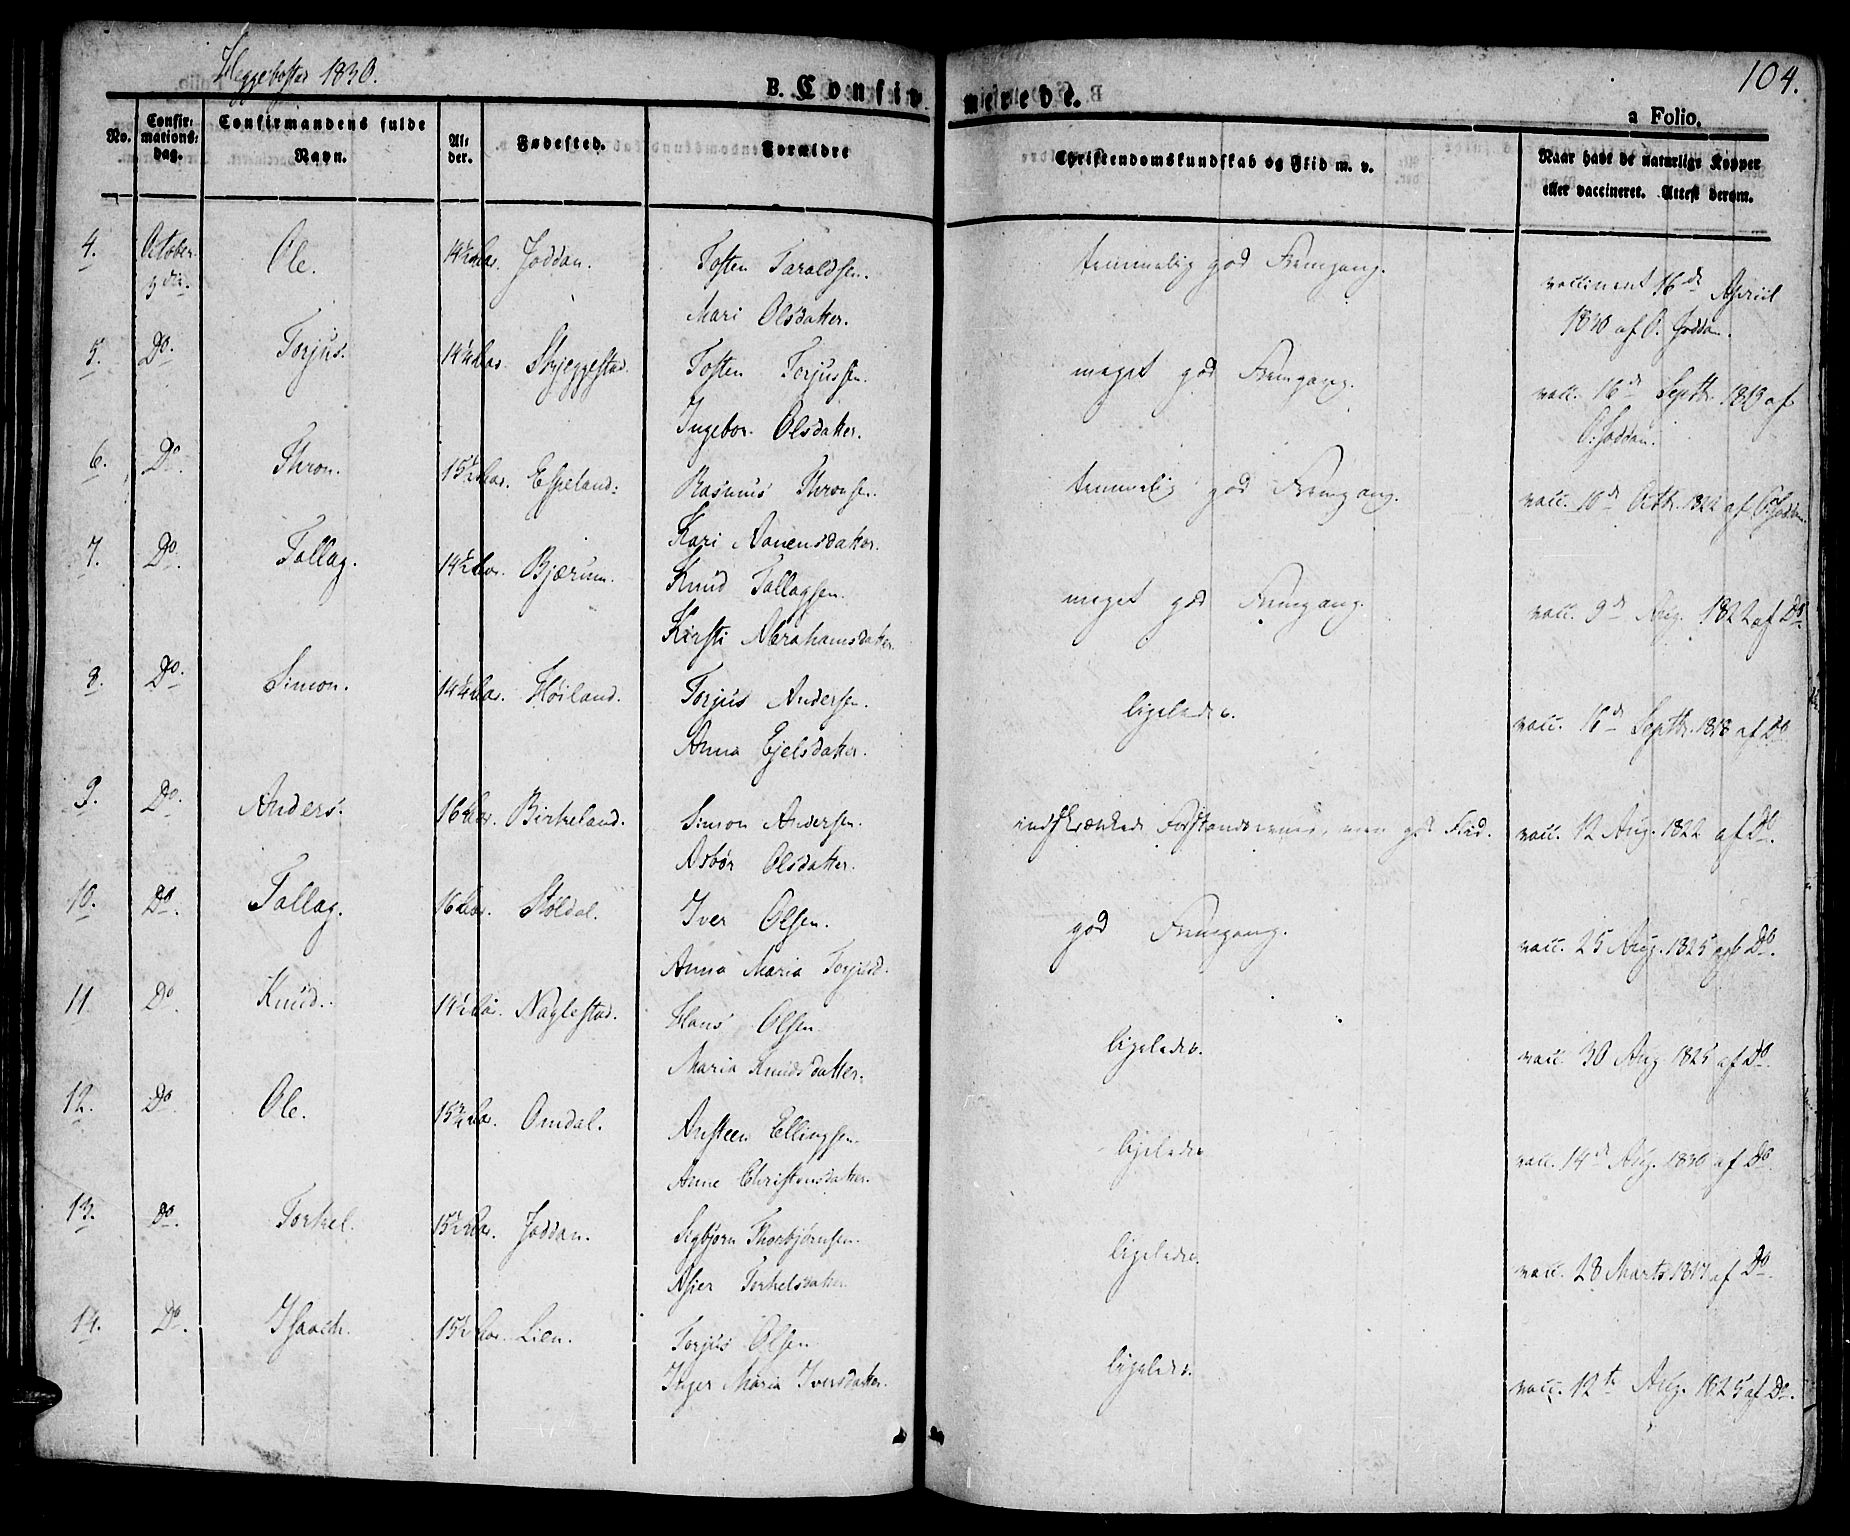 Heggebostad 1830.
B. Confirmerede.
104.
a Folio.
No.
Confirmations: dag.
Confirmandens fulde Navn.
Alder.
Fødested.
Forældre
Christendomskundskab og Flid m. v.
Naar havt de naturlige Kopper eller vaccineret. Attest derom.
4. October 3die. Ole. 14½ Aar. Joddan. Tosten Taraldsen. temmelig god Fremgang. vaccineret 16de Apriil
Mari Olsdatter. 1830 af O. Joddan.
5. Do. Torjus. 14¼ Aar. Skjeggestad. Tosten Torjussen. meget god Fremgang. vacc. 16de Septbr. 1819 af
Ingebor Olsdatter. O. Joddan.
6. Do. Thron. 15½ Aar. Espeland. Rasmus Thronsen. temmelig god Fremgang. vacc. 10de Octbr. 1822 af O. Joddan.
Kari Aanensdatter.
7. Do. Tallag. 14½ Aar. Bjærum. Knud Tallagsen. meget god Fremgang. vacc. 9de Aug. 1822 af Do.
Kirsti Abrahamsdatter.
8. Do. Simon. 14¼ Aar. Høiland. Torjus Andersen. ligeledes. vacc. 16de Septbr. 1818 af Do.
Anna Ejelsdatter.
9. Do. Anders. 16 Aar. Birkeland. Simon Andersen. indskrænkede Forstandsevner, men god Flid. vacc. 12 Aug. 1822 af Do.
Asbør Olsdatter.
10. Do. Tallag. 16 Aar. Støldal. Iver Olsen. god Fremgang. vacc. 25 Aug. 1825 af Do.
Anna Maria Torjusd.
11. Do. Knud. 14½ Aar. Naglestad. Hans Olsen. ligeledes. vacc. 30 Aug. 1825 af Do.
Maria Knudsdatter.
12. Do. Ole. 15¾ Aar. Omdal. Ansteen Ellingsen. ligeledes. vacc. 14de Aug. 1830 af Do.
Anne Christensdatter.
13. Do. Torkel. 15½ Aar. Joddan. Sigbjørn Thorbjørnsen. ligeledes. vacc. 28 Marts 1817 af Do.
Asier Torkelsdatter.
14. Do. Isaach. 15½ Aar. Lien. Torjus Olsen. ligeledes. vacc. 12te Aug. 1825 af Do.
Inger Maria Iversdatter.